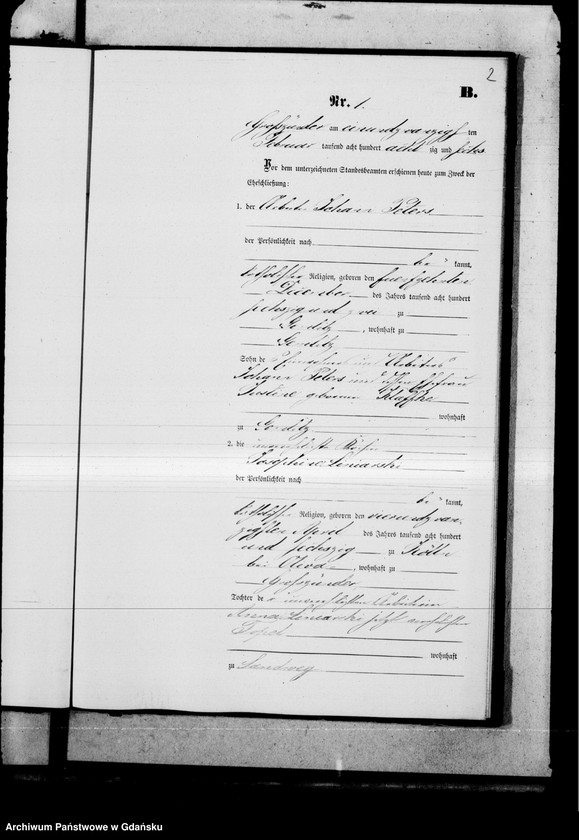 2
B.
Nr. 1.
Großzünder am einundzwanzigsten
Februar tausend acht hundert acht zig und sechs
Vor dem unterzeichneten Standesbeamten erschienen heute zum Zweck der
Eheschließung:
1. der Arbeiter Johann Peters
der Persönlichkeit nach
be kannt,
katholischer Religion, geboren den fuenfzehnten
Dezember des Jahres tausend acht hundert
sechszig und zwei zu
, wohnhaft zu
Sohn de
Johann Peters und
Justine geborene
wohnhaft
zu
2. die unverehelichte
Josephine
der Persönlichkeit nach
be kannt,
katholischer Religion, geboren den vierundzwan-
zigsten April des Jahres tausend acht hundert
und sechszig zu Kölln
bei Oliva , wohnhaft zu
Großzünder
Tochter der unverehelichten Arbeiterin
Anna jetzt verehelichten
wohnhaft
zu Landweg
Archiwum Państwowe w Gdańsku